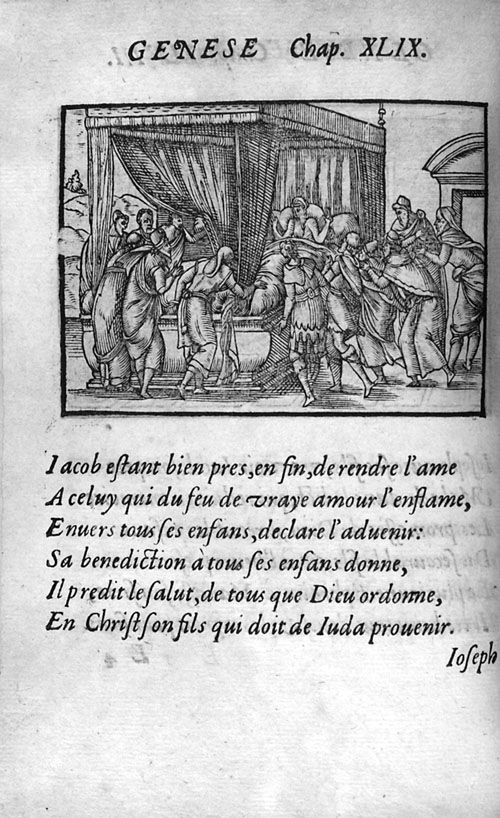 GENESE Chap. XLIX.
Iacob eſtant bien pres, en fin, de rendre l'ame
A celuy qui du feu de vraye amour l'enflame,
Enuers tous ſes enfans, declare l'aduenir:
Sa benediction à tous ſes enfans donne,
Il predit le ſalut, de tous que Dieu ordonne,
En Chriſt ſon fils qui doit de Iuda prouenir.
Ioſeph